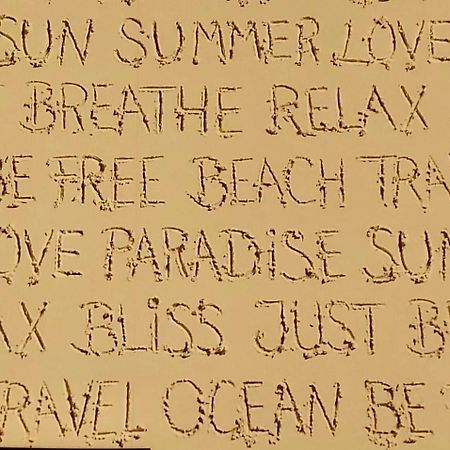 SUN SUMMER LOVE
BREATHE RELAX
BE FREE BEACH TRA
OVE PARADiSE SUN
AX BLiSS JUST B
RAVEL OCEAN BE